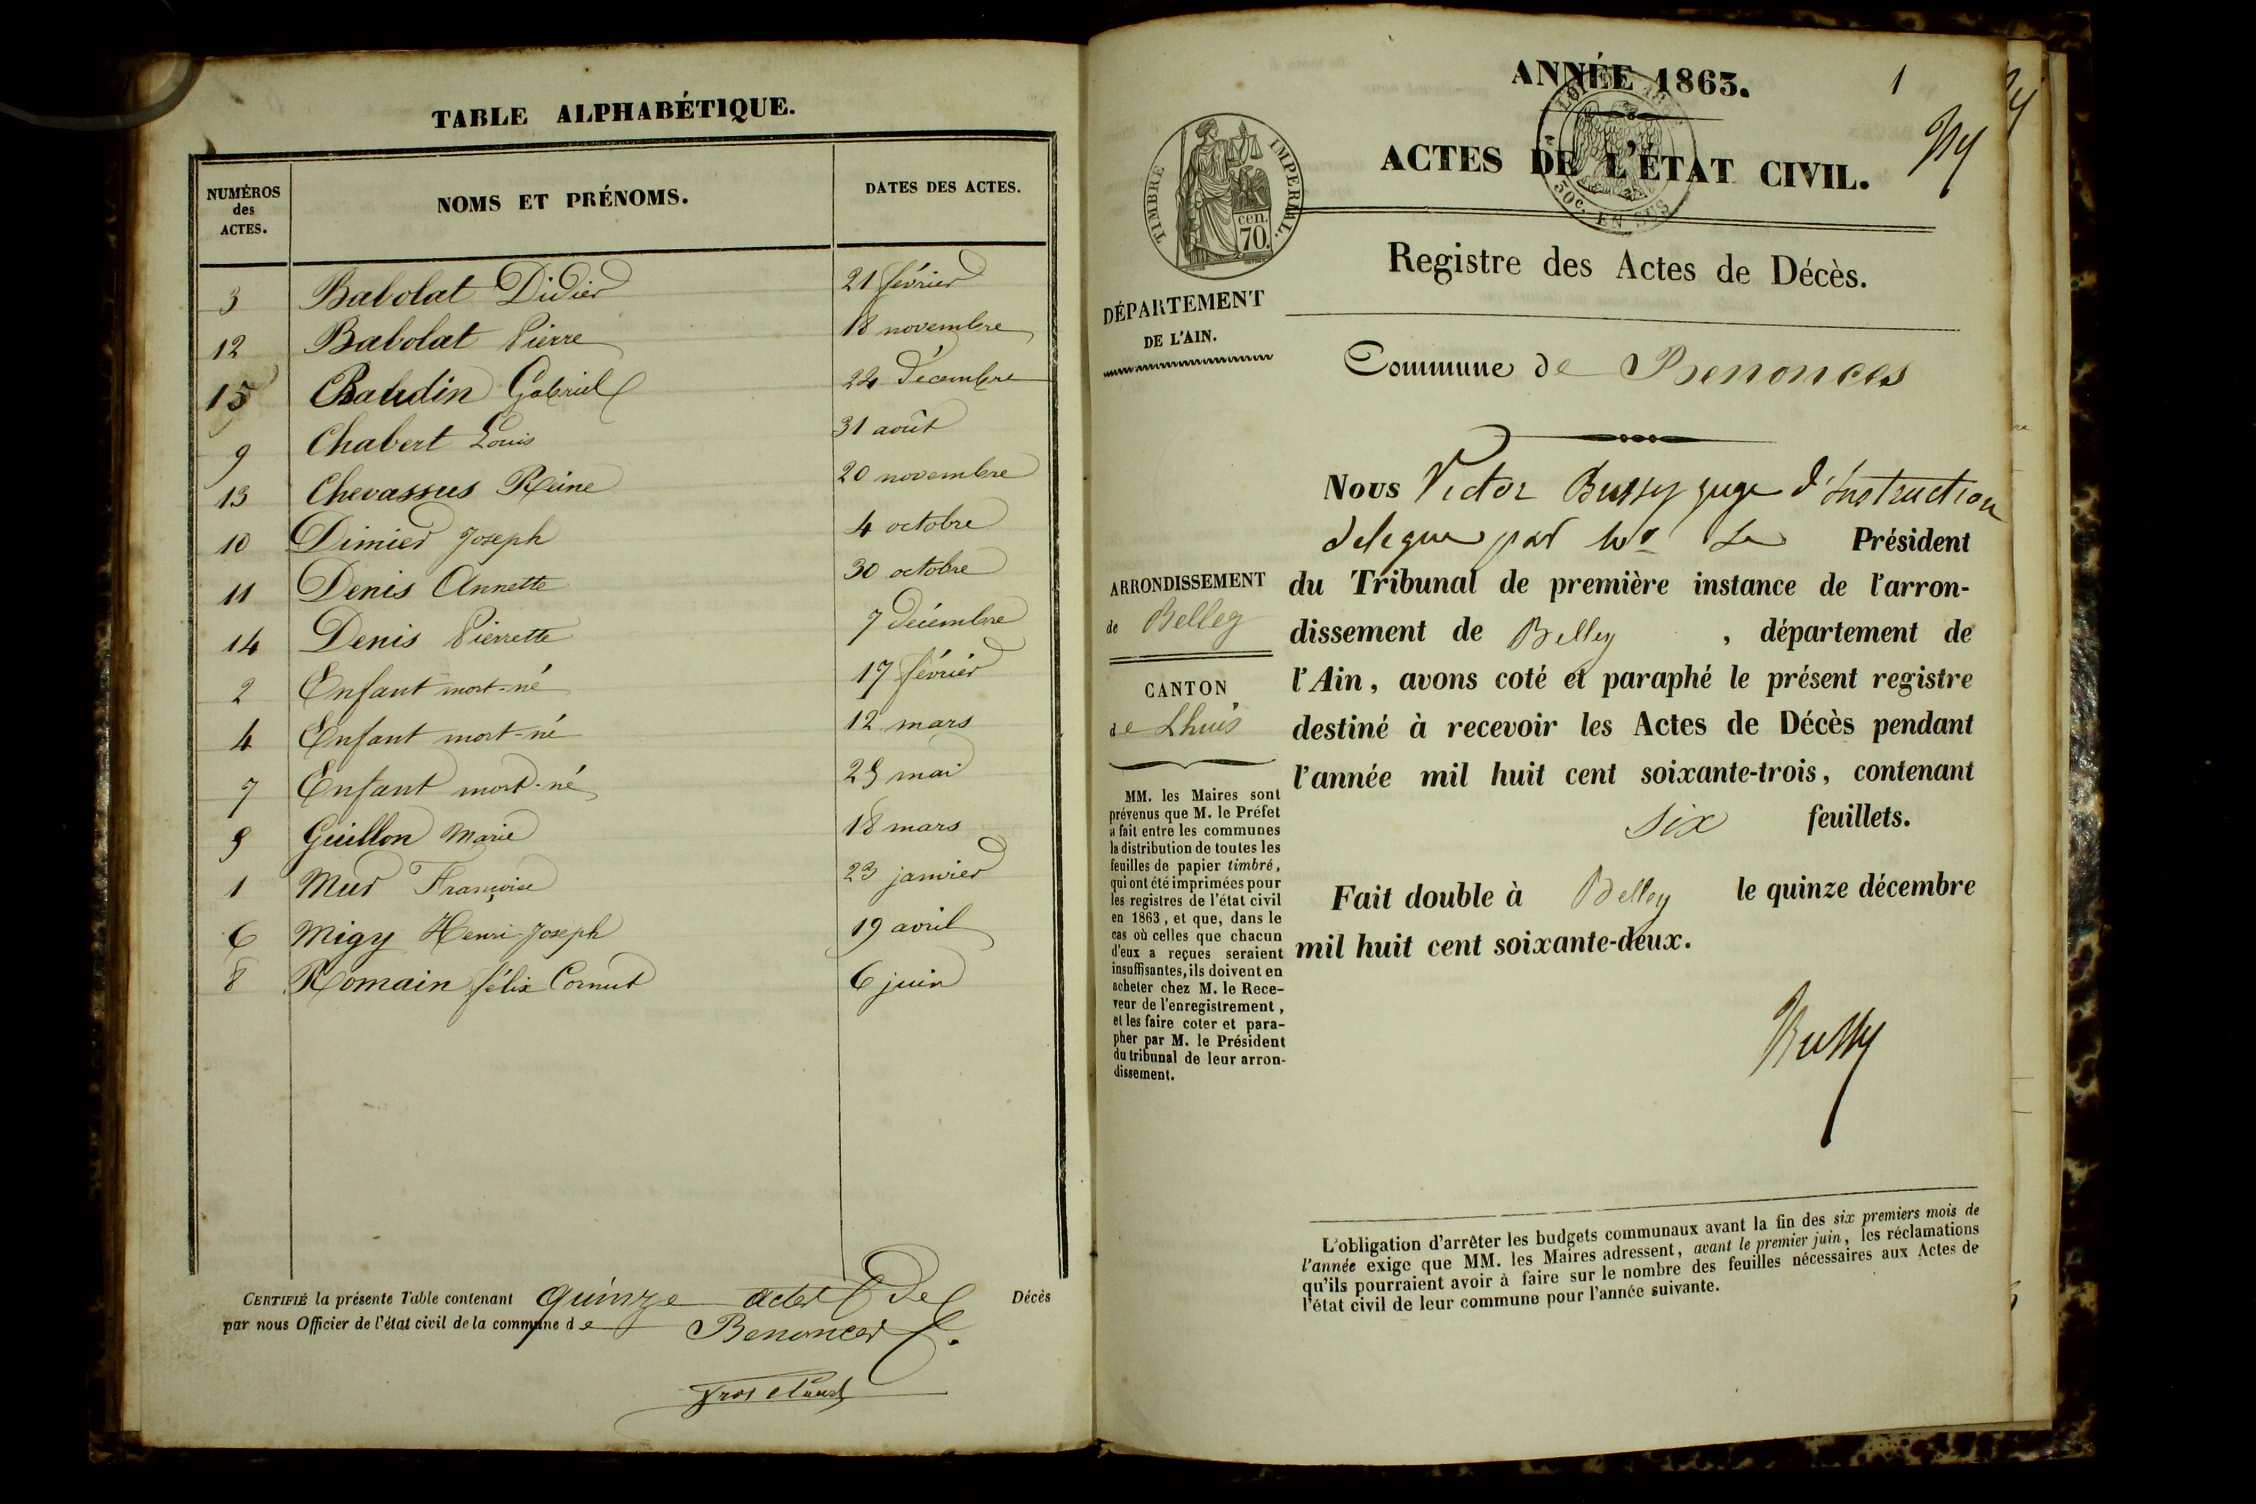 TABLE ALPHABÉTIQUE.
NUMÉROS des ACTES. NOMS ET PRÉNOMS. DATES DES ACTES.
3 Babolat Didier 21 février
12 Babolat Pierre 18 novembre
15 Baudin Gabriel 24 décembre
9 Chabert Louis 31 août
13 Chevassus Reine 20 novembre
10 Dimier Joseph 4 octobre
11 Denis Annette 30 octobre
14 Denis Pierrette 7 décembre
2 Enfant mort-né 17 février
4 Enfant mort-né 12 mars
7 Enfant mort-né 25 mai
5 Guillon Marie 18 mars
1 Mur Françoise 23 janvier
6 Migy Henri-Joseph 19 avril
8 Romain félix Cornut 6 juin
CERTIFIÉ la présente Table contenant quinze actes de Décès
par nous Officier de l'état civil de la commune de Benonces
1
ANNÉE 1863.
ACTES DE L'ÉTAT CIVIL.
TIMBRE IMPERIAL.
cen.
70.
50c. EN SUS
Registre des Actes de Décès.
DÉPARTEMENT
DE L'AIN.
Commune de Benonces
Nous Victor Bussy juge d'instruction
delegue par Mr Le Président
du Tribunal de première instance de l'arron-
dissement de Belley, département de
l'Ain, avons coté et paraphé le présent registre
destiné à recevoir les Actes de Décès pendant
l'année mil huit cent soixante-trois, contenant
six feuillets.
Fait double à Belley le quinze décembre
mil huit cent soixante-deux.
Bussy
ARRONDISSEMENT
de Belley
CANTON
de Lhuis
MM. les Maires sont
prévenus que M. le Préfet
a fait entre les communes
la distribution de toutes les
feuilles de papier timbré,
qui ont été imprimées pour
les registres de l'état civil
en 1863, et que, dans le
cas où celles que chacun
d'eux a reçues seraient
insuffisantes, ils doivent en
acheter chez M. le Rece-
veur de l'enregistrement,
et les faire coter et para-
pher par M. le Président
du tribunal de leur arron-
dissement.
L'obligation d'arrêter les budgets communaux avant la fin des six premiers mois de
l'année exige que MM. les Maires adressent, avant le premier juin, les réclamations
qu'ils pourraient avoir à faire sur le nombre des feuilles nécessaires aux Actes de
l'état civil de leur commune pour l'année suivante.